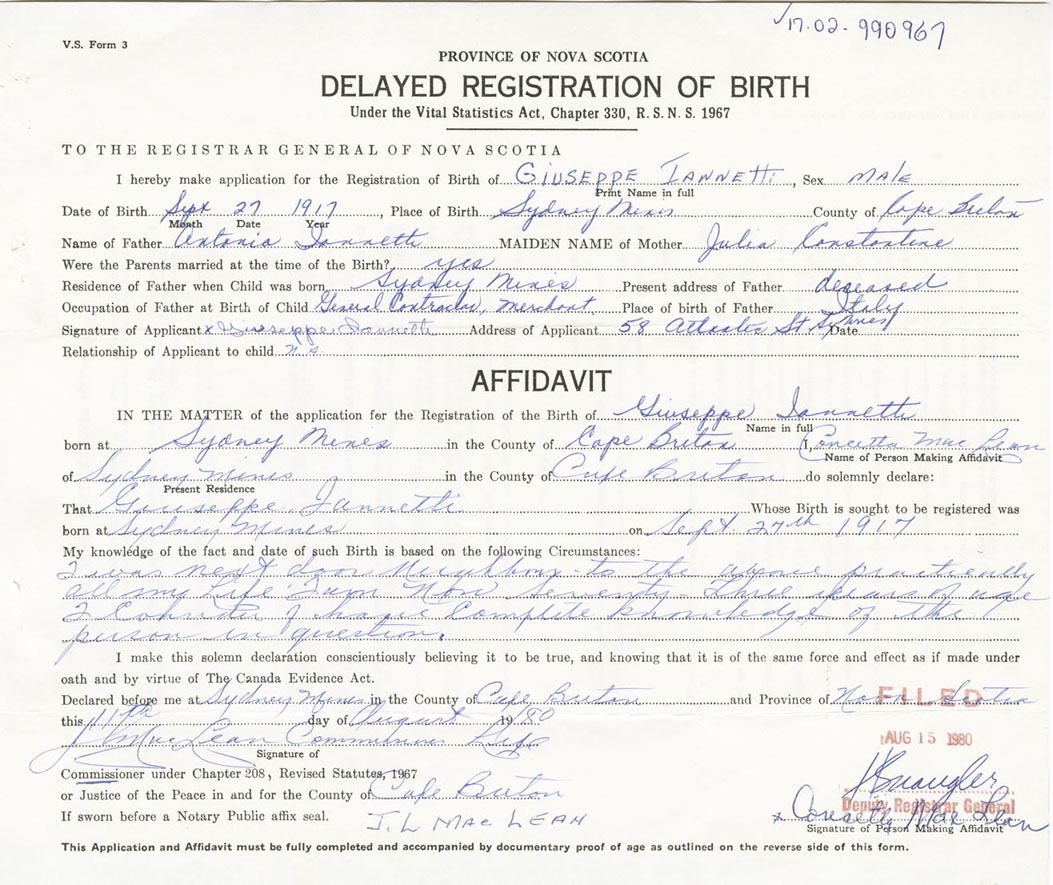 17-02-990967
V.S. Form 3
PROVINCE OF NOVA SCOTIA
DELAYED REGISTRATION OF BIRTH
Under the Vital Statistics Act, Chapter 330, R. S. N. S. 1967
TO THE REGISTRAR GENERAL OF NOVA SCOTIA
I hereby make application for the Registration of Birth of GIUSEPPE IANNETTI, Sex MALE
Print Name in full
Date of Birth Sept 27 1917, Place of Birth Sydney Mines County of Cape Breton
Month Date Year
Name of Father Antonio Iannetti MAIDEN NAME of Mother Julia Constantine
Were the Parents married at the time of the Birth? yes
Residence of Father when Child was born Sydney Mines Present address of Father deseased
Occupation of Father at Birth of Child General Contractor, merchant Place of birth of Father Italy
Signature of Applicant x Giuseppe Iannetti Address of Applicant 58 Atlantic St. S. Mines Date
Relationship of Applicant to child n.a.
AFFIDAVIT
IN THE MATTER of the application for the Registration of the Birth of Giuseppe Iannetti
Name in full
born at Sydney Mines in the County of Cape Breton I, Concetta Mac Lean
Name of Person Making Affidavit
of Sydney Mines in the County of Cape Breton do solemnly declare:
Present Residence
That Giuseppe Iannetti Whose Birth is sought to be registered was
born at Sydney Mines on Sept. 27th 1917
My knowledge of the fact and date of such Birth is based on the following Circumstances:
I was next door Neighbour to the above practically
all my Life I am Now Seventy Three years of age
I Consider I have Complete knowledge of the
person in question.
I make this solemn declaration conscientiously believing it to be true, and knowing that it is of the same force and effect as if made under
oath and by virtue of The Canada Evidence Act.
Declared before me at Sydney Mines in the County of Cape Breton and Province of Nova Scotia
FILED
this 11th day of August 1980
AUG 15 1980
J L MacLean Commissioner
Signature of
Commissioner under Chapter 208, Revised Statutes, 1967
or Justice of the Peace in and for the County of Cape Breton
Deputy Registrar General
If sworn before a Notary Public affix seal. J. L MAC LEAN
x Concetta Mac Lean
Signature of Person Making Affidavit
This Application and Affidavit must be fully completed and accompanied by documentary proof of age as outlined on the reverse side of this form.